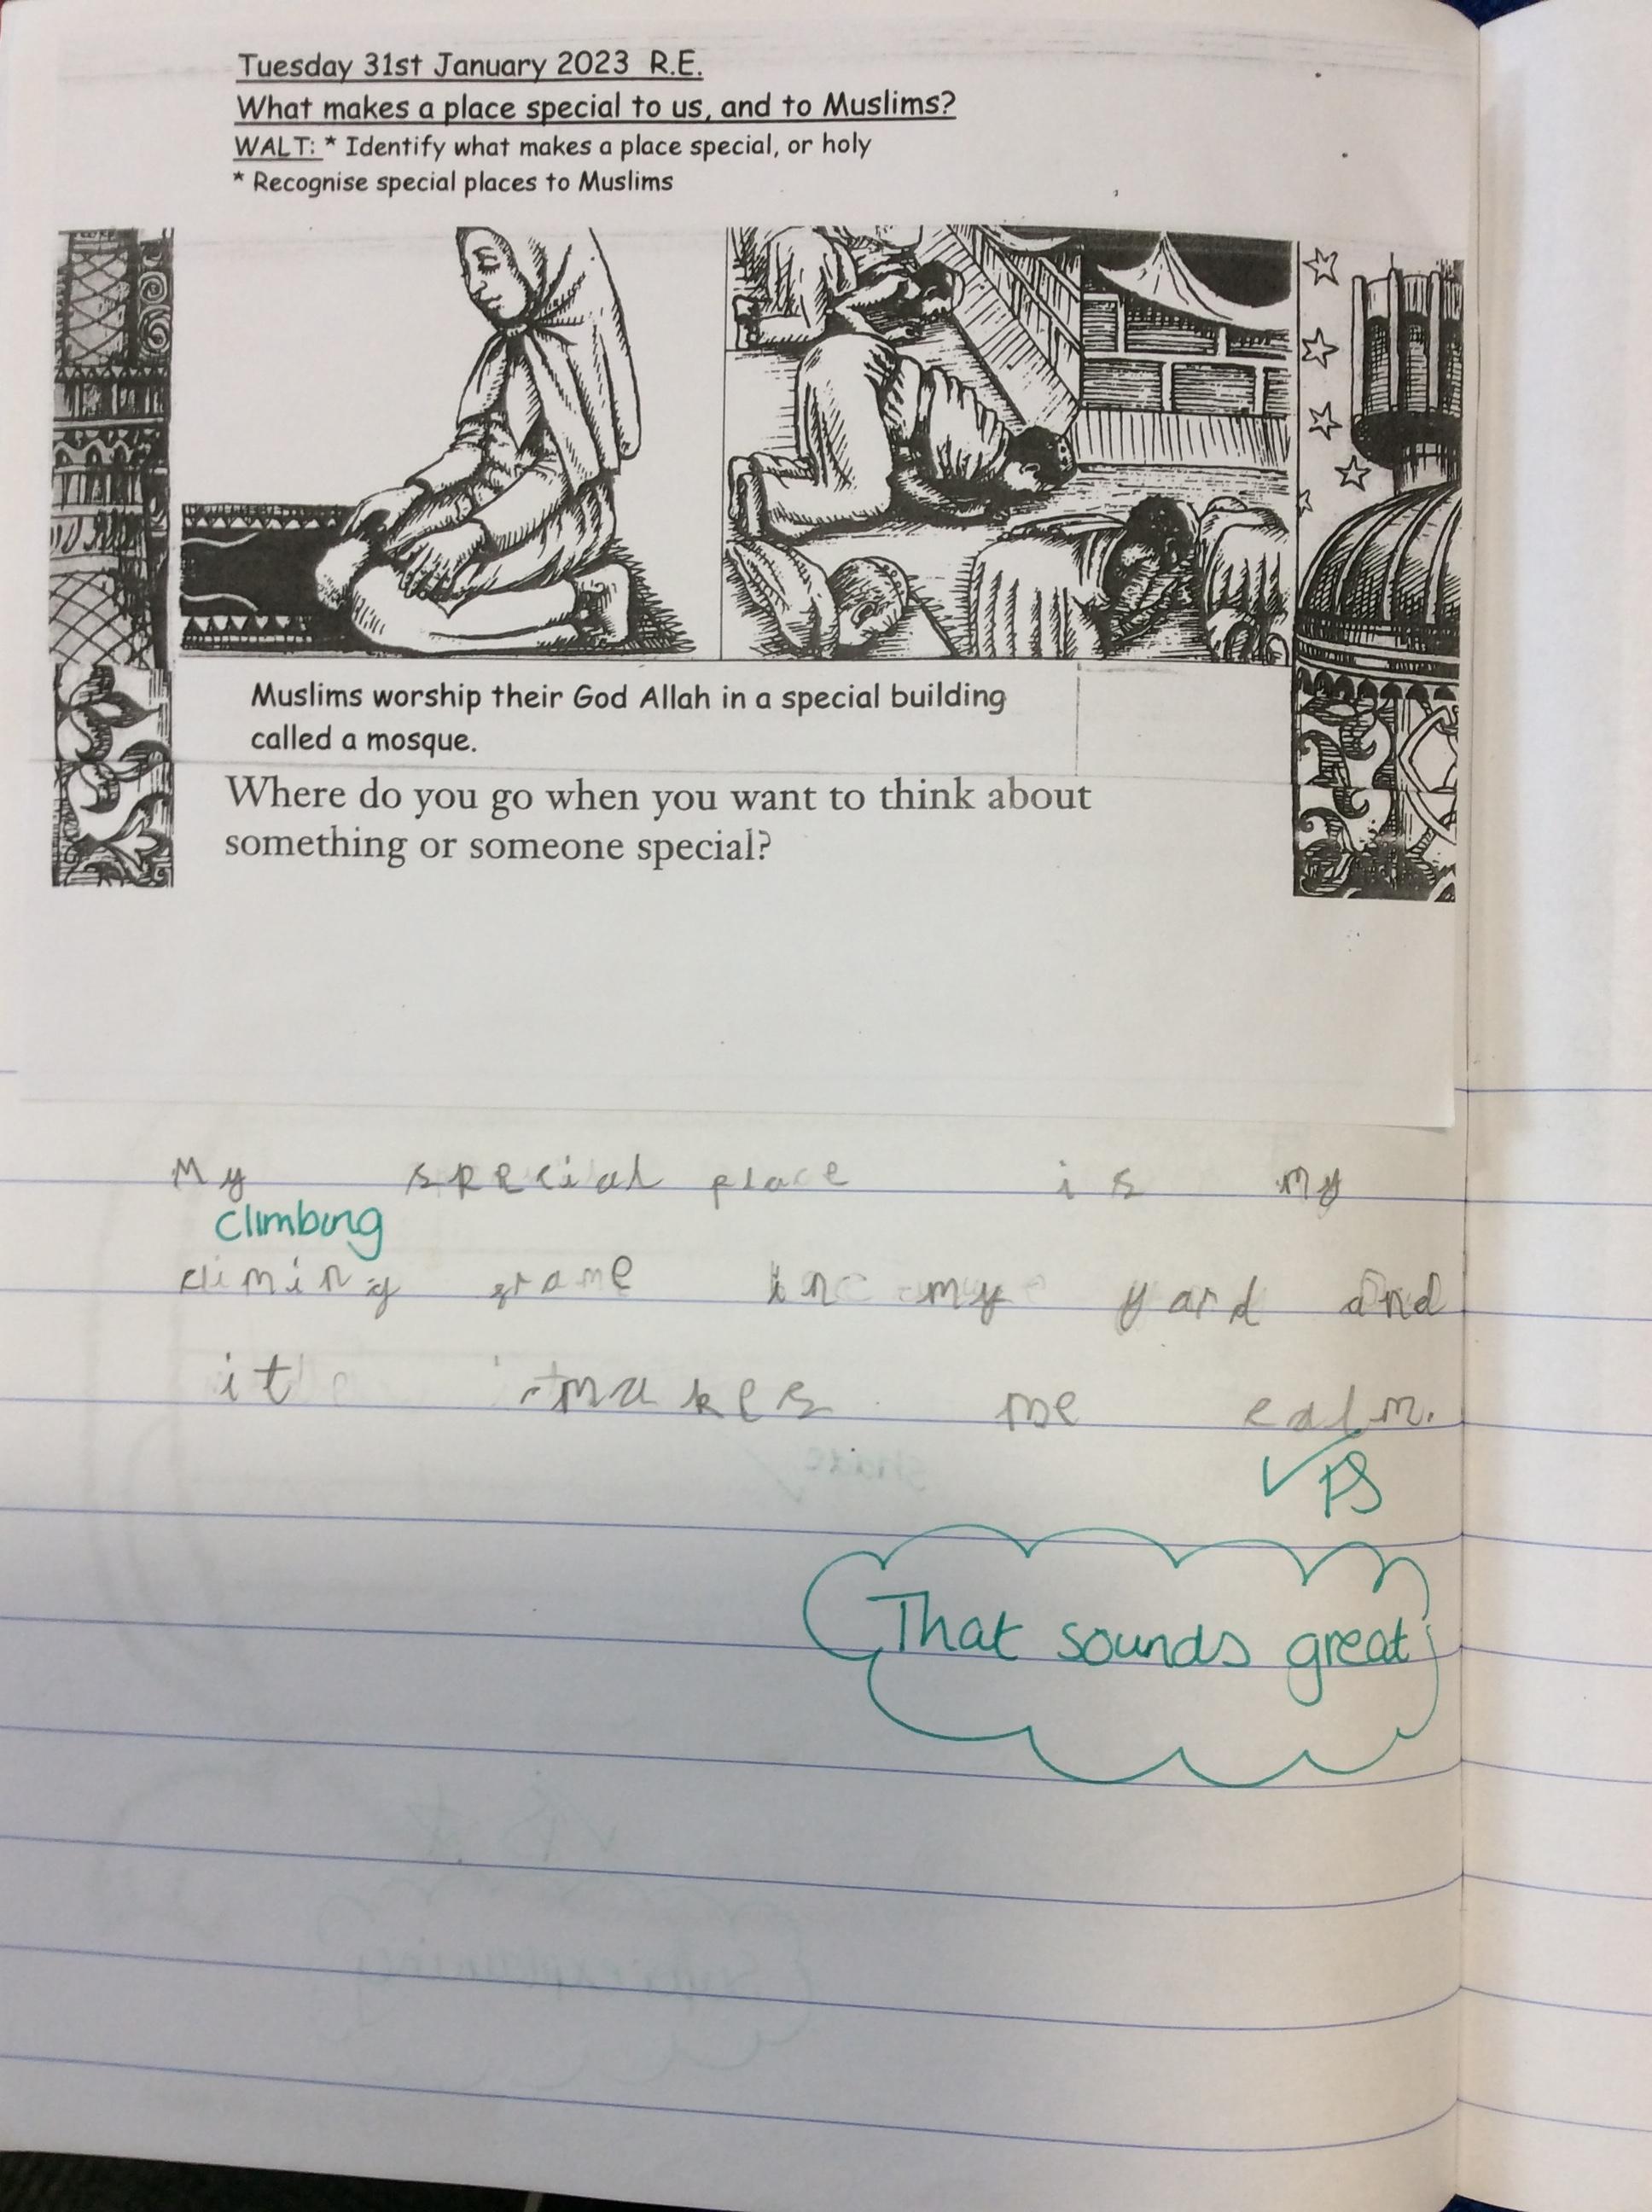 Tuesday 31st January 2023 R.E.
What makes a place special to us, and to Muslims?
WALT: * Identify what makes a place special, or holy
* Recognise special places to Muslims
Muslims worship their God Allah in a special building
called a mosque.
Where do you go when you want to think about
something or someone special?
My special place is my
climbing
climing frame in my yard and
it makes me calm.
✓ PS
That sounds great